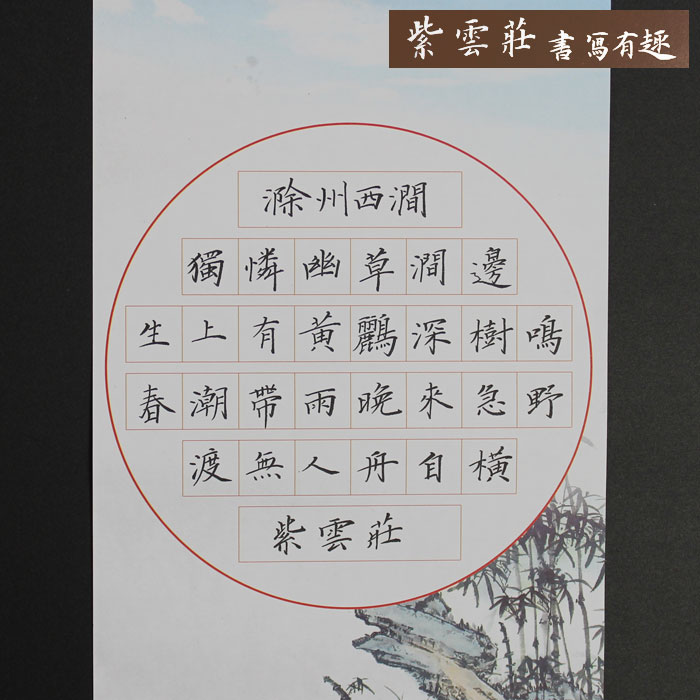 紫雲莊書寫有趣
滁州西澗
獨憐幽草澗邊
生上有黃鸝深樹鳴
春潮帶雨晚來急野
渡無人舟自橫
紫雲莊